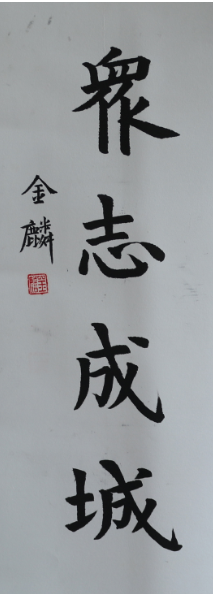 衆志成城
金麟